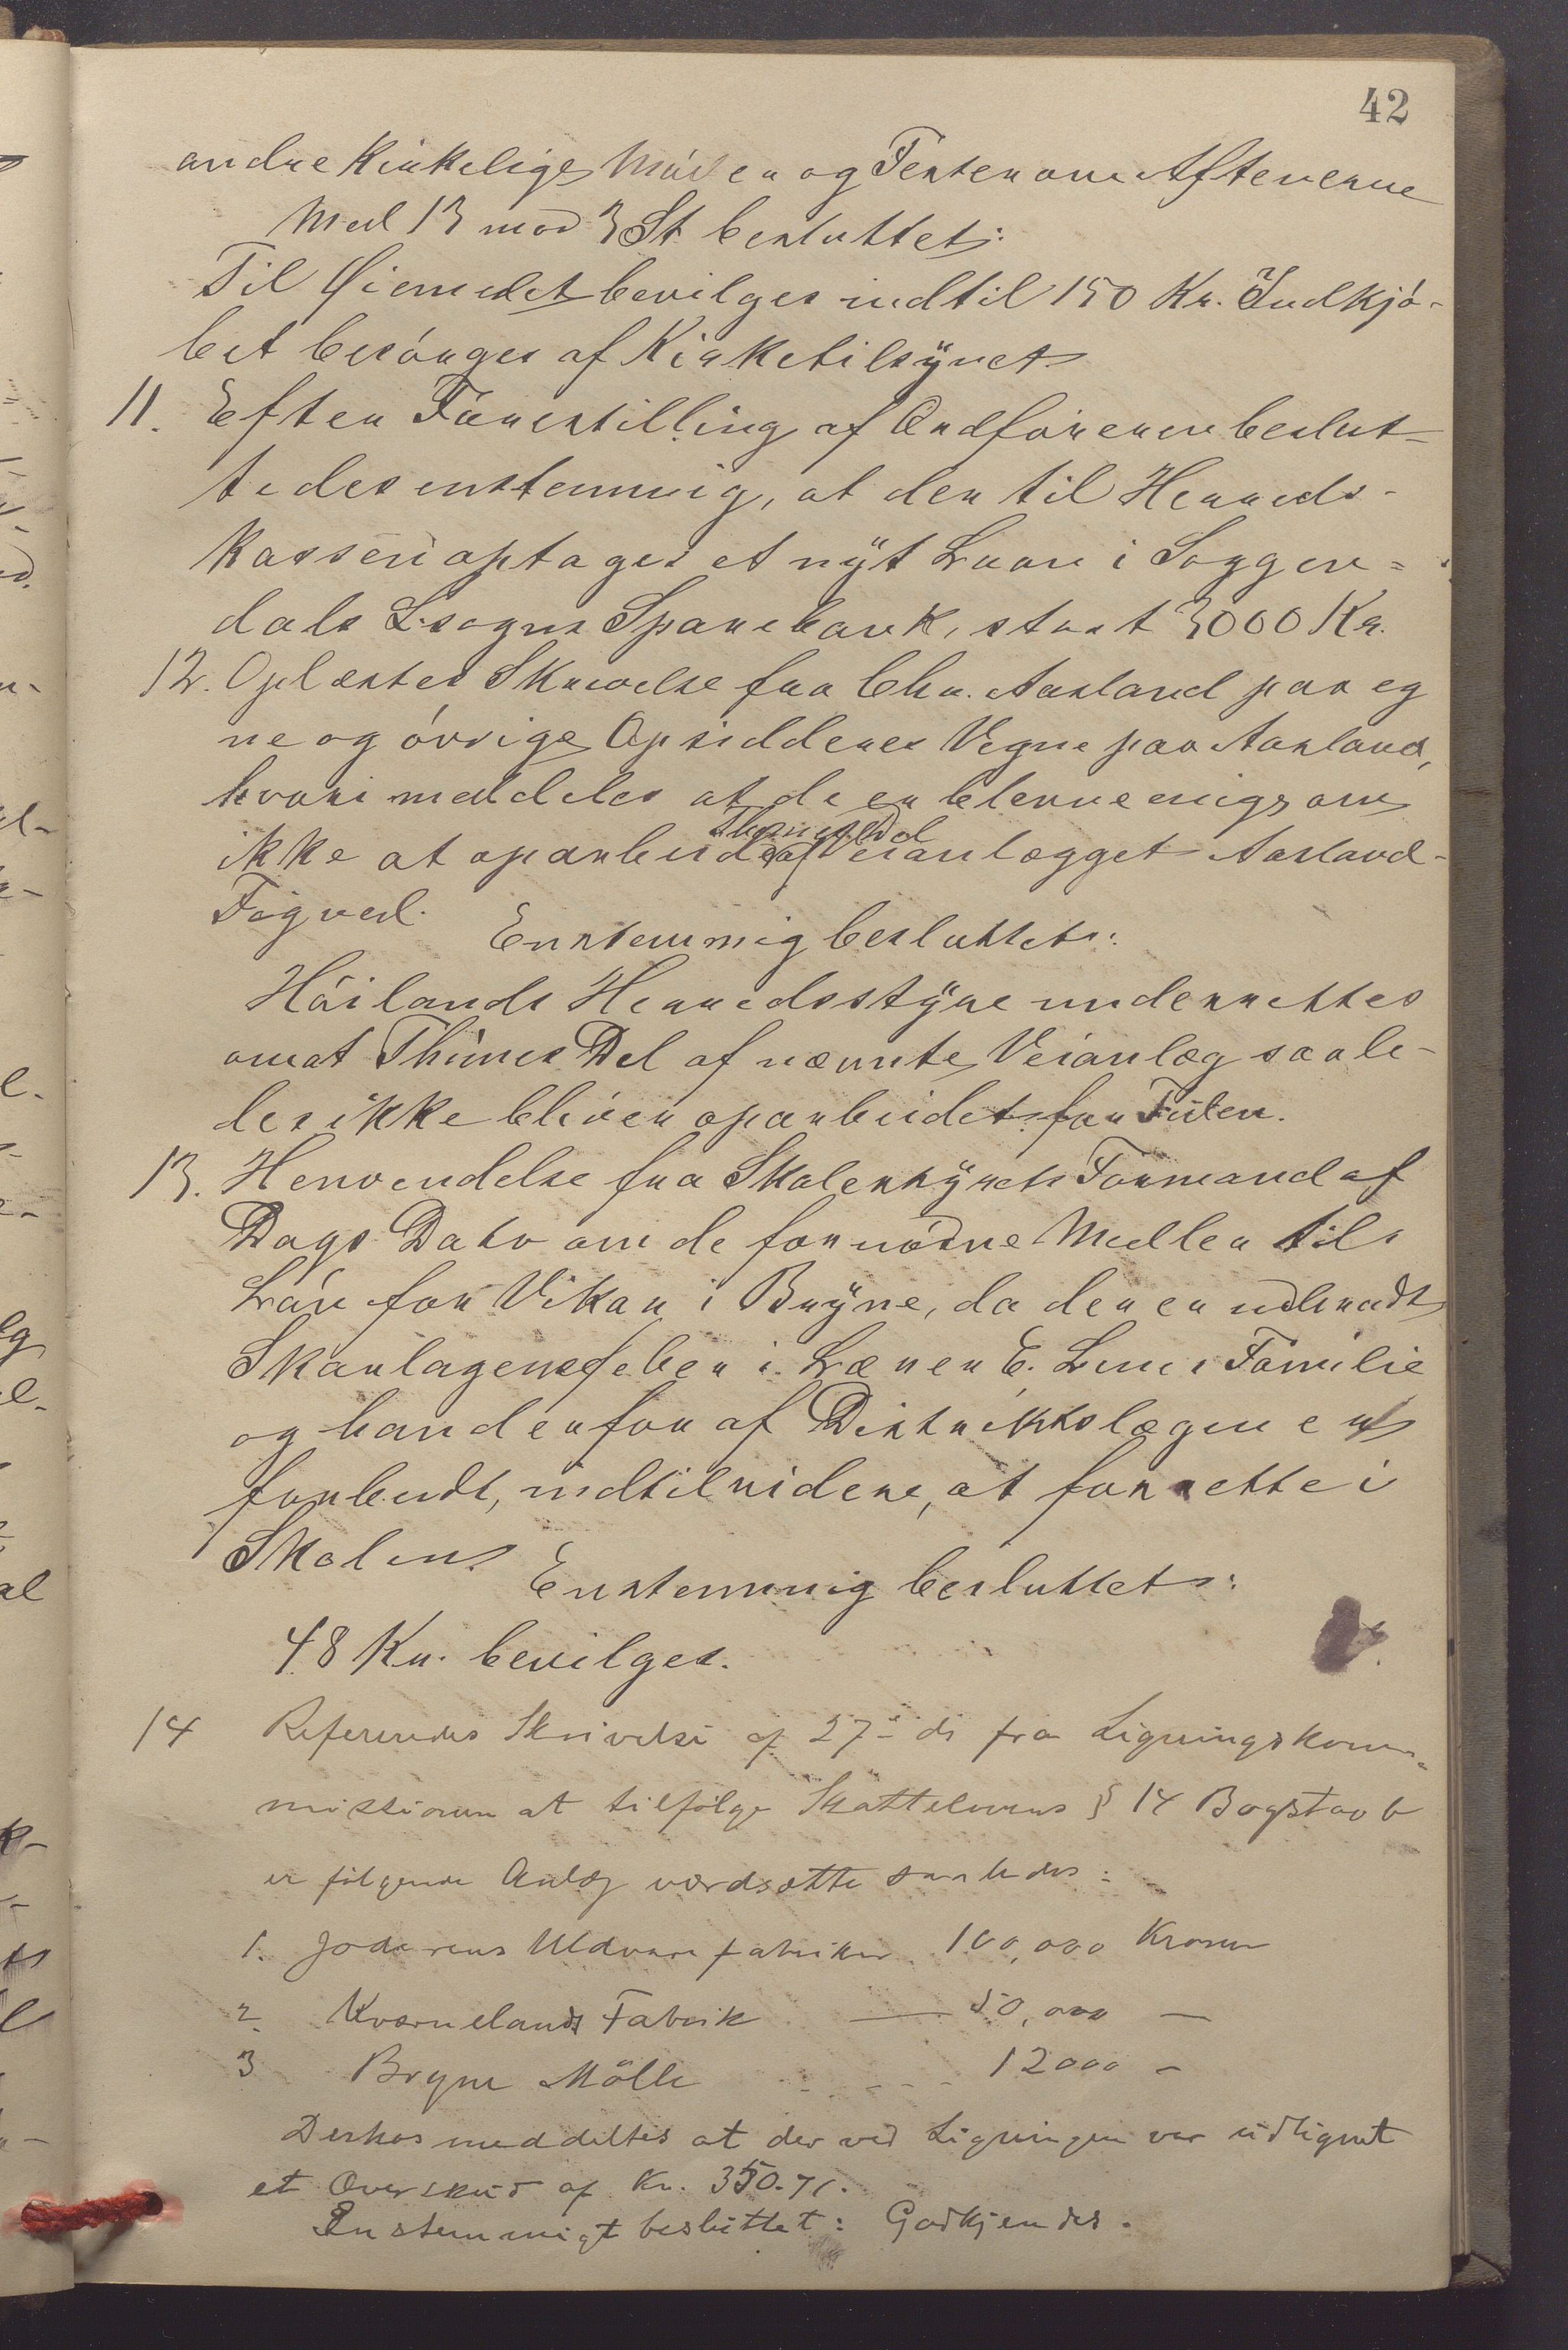 42
andre kirkelige Møder og Fester om Aftenerne
Med 13 mod 3 St. besluttet:
Til Øiemedet bevilges indtil 150 Kr. Indkjø-
bet besørges af Kirketilsynet
11. Efter Foreestilling af Ordføreren beslut-
tedes enstemmig, at der til Herreds-
kassen optages et nyt Laan i Soggen-
dals L-sogns Sparebank, stort 3000 Kr.
12. Oplæstes Skrivelse fra Chr. Aarland paa eg
ne og øvrige Opsidderes Vegne paa Aarland,
hvori meddeles at de er blevne enige om
Thimes Del
ikke at oparbeide af Veianlægget Aarland-
Figved.
Enstemmig besluttet:
Høilands Herredsstyre underrettes
om at Thimes Del af nævnte Veianlæg saale-
des ikke bliver oparbeidet for Tiden.
13. Henvendelse fra Skolestyrets Formand af
Dags Dato om de fornødne Midler til
Løn for Vikar i Bryne, da der er udbrudt
Skarlagensfeber i Lærer E. Lunes Familie
og han derfor af Distriktslægen er
forbudt, indtil videre, at forrette i
Skolen.
Enstemmig besluttet:
48 Kr. bevilges.
14 Refereredes Skrivelse af 27de ds fra Ligningskom-
missionen at tilfølge Skattelovens § 14 Bogstav b
er følgende Anlæg værdsatte saaledes:
1. Jæderens Uldvarefabriker 100,000 Kroner
2. Kværnelands Fabrik — 50,000 —
3 Bryne Mölle - - - - 12000 -
Derhos meddeltes at der ved Ligningen var udlignet
et Overskud af Kr. 350.71.
Enstemmigt besluttet: Godkjendes.